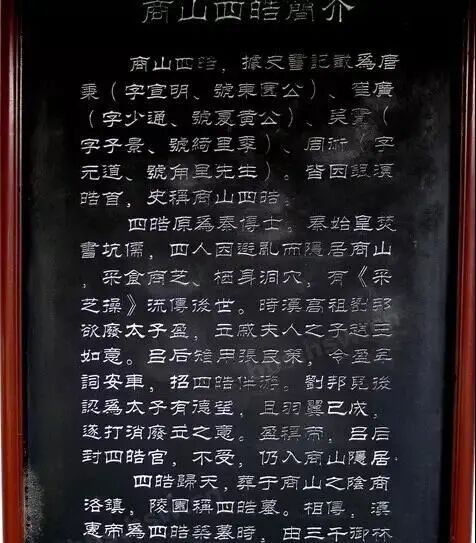 商山四皓簡介
商山四皓，據史書記載爲唐
秉（字宣明、號東園公）、崔廣
（字少通、號夏黄公）、吳實（
字子景、號綺里季）、周術（字
元道、號角里先生）。皆因銀湏
皓首，史稱商山四皓。
四皓原爲秦博士。秦始皇焚
書坑儒，四人因避亂而隱居商山
，采食商芝、栖身洞穴，有《采
芝操》流傳後世。時漢高祖劉邦
欲廢太子盈，立戚夫人之子趙王
如意。吕后始用張良策，令盈卑
詞安車，招四皓伴游。劉邦見後
認爲太子有德望，且羽翼已成，
逐打消廢立之意。盈稱帝，吕后
封四皓官，不受，仍入商山隱居
四皓歸天，葬于商山之陰商
洛鎮，陵園稱四皓墓。相傳，漢
惠帝爲四皓築墓時，由三千御林